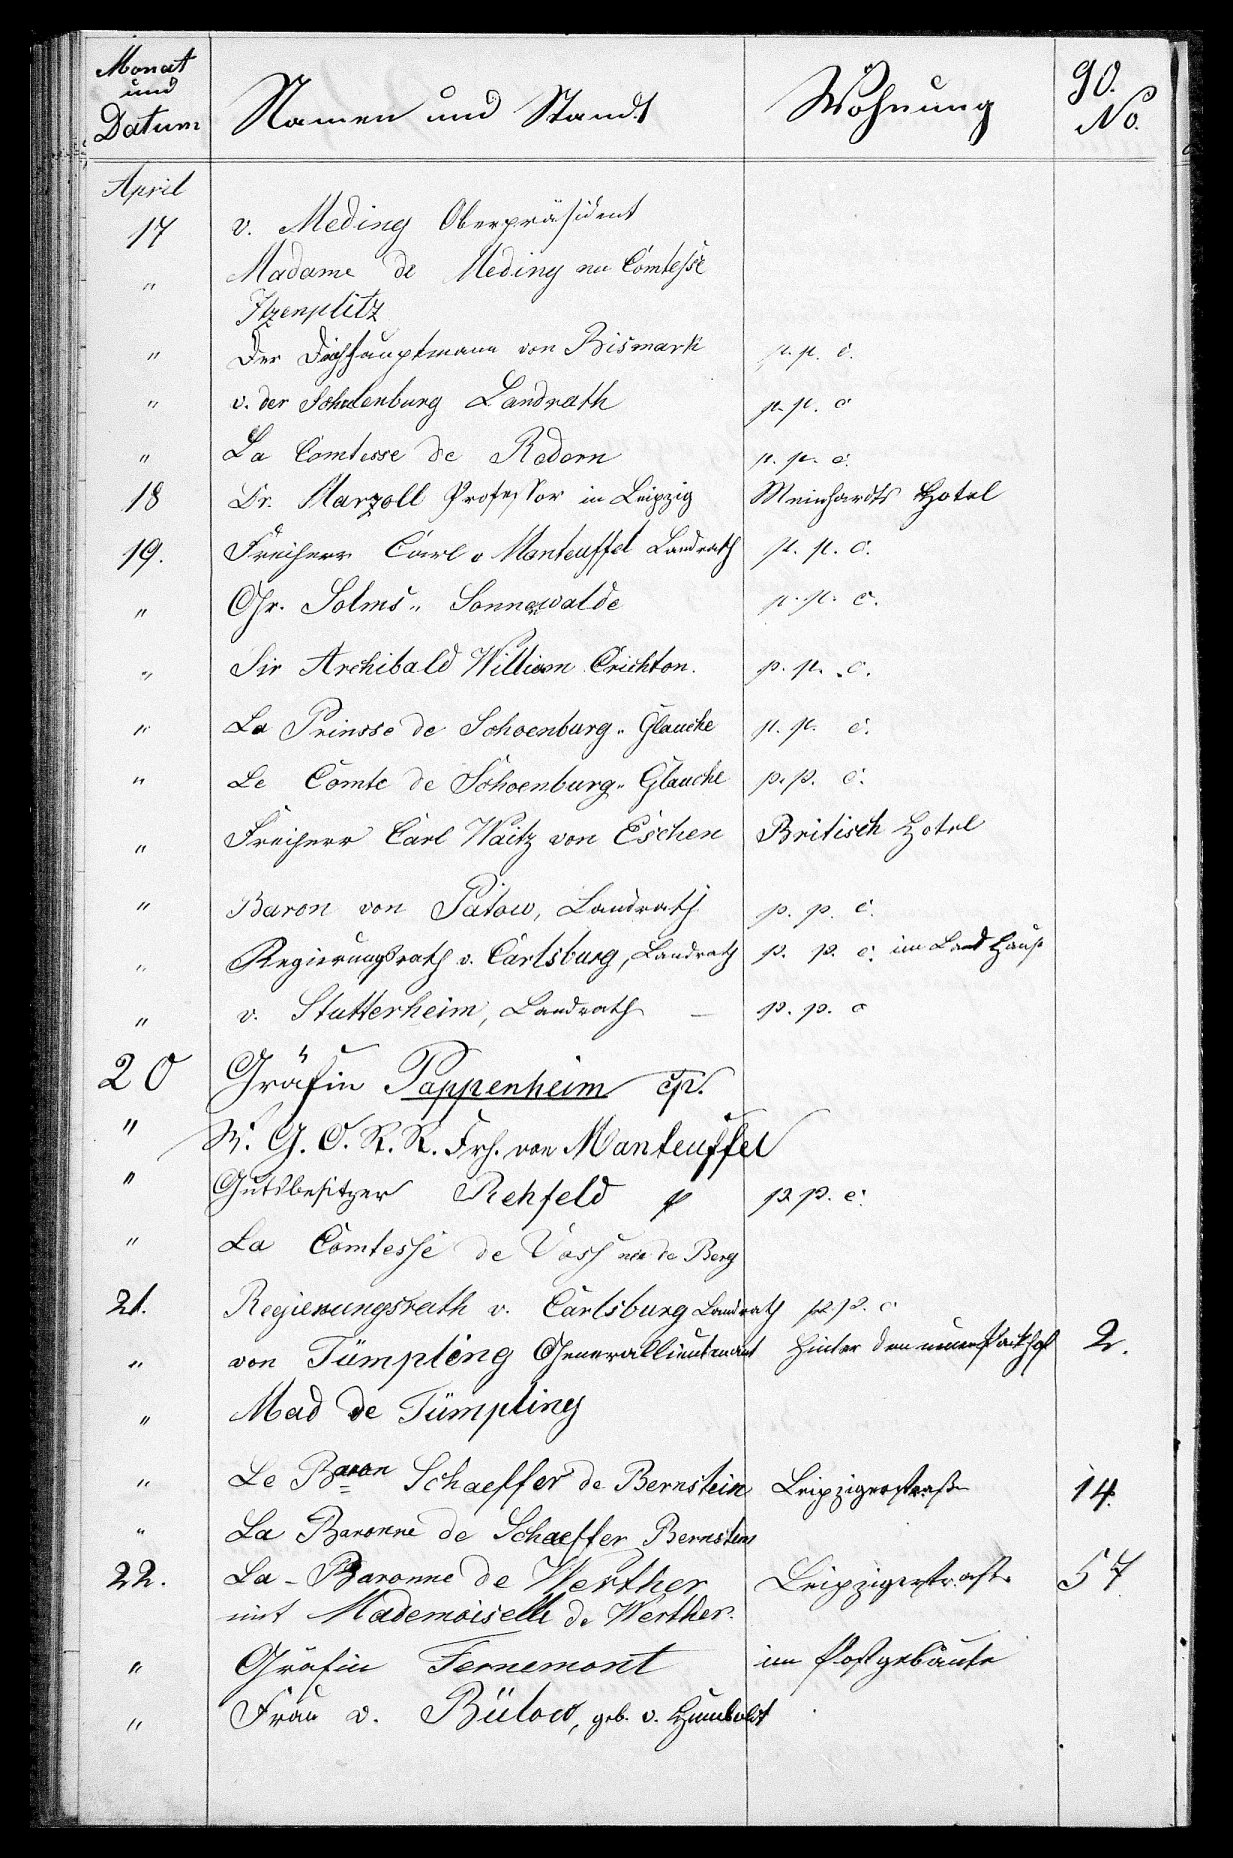 90.
Monat und Datum Namen und Standt Wohnung No.
April
17 v. Meding Oberpräsident
" Madame de Meding née Comtesse
Itzenplitz
" Der Deichhauptmann von Bismark p. p. c.
" v. der Schulenburg Landrath p. p. c
" La Comtesse de Redern p. p. c.
18 Dr. Marzoll Professor in Leipzig Meinhardts Hotel
19. Freiherr Carl v Manteuffel Landrath p. p. c.
" Gr. Solms " Sonnewalde p. p. c.
" Sir Archibald William Crichton. p. p. c.
" La Prinsse de Schoenburg " Glauche p. p. c.
" Le Comte de Schoenburg " Glauche p. p. c.
" Freiherr Carl Waitz von Eschen Britisch Hotel
" Baron von Patow, Landrath p. p. c.
" Regierungsrath v. Carlsburg, Landrath p. p. c. im Land Haus
" v. Stutterheim, Landrath – p. p. c
20 Gräfin Pappenheim cp.
" W. G. O. R. R. Frh. von Manteuffel
" Gutsbesitzer Rehfeld p. p. c.
" La Comtesse de Voss née de Berg
21. Regierungsrath v. Carlsburg Landrath p. p. c
" von Tümpling Generallieutenant Hinter dem neuen Packhof 2.
" Mad de Tümpling
" Le Baron Schaeffer de Bernstein Leipzigerstraße 14.
" La Baronne de Schaeffer Bernstein
22. La – Baronne de Werther Leipzigerstraße 57
mit Mademoiselle de Werther.
" Gräfin Fernemont im Postgebäute
" Frau v. Bülow, geb. v. Humboldt